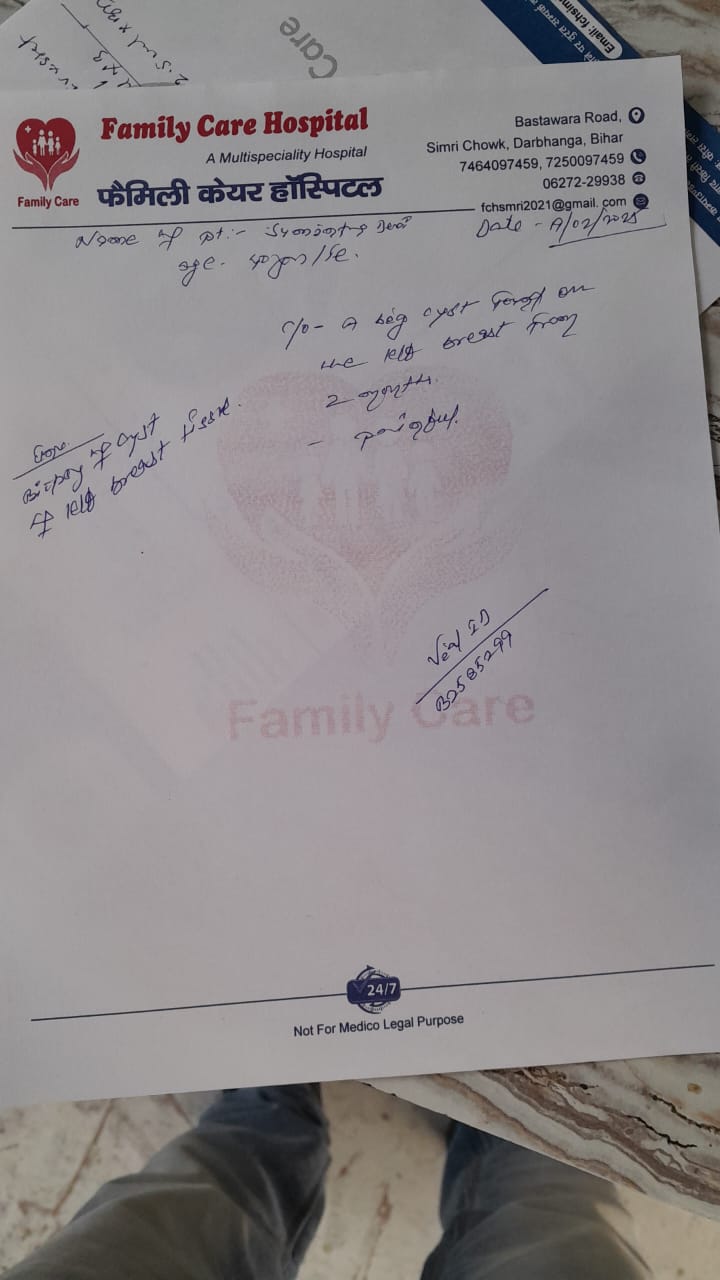 Care
Email: fchsim
Family Care Hospital
A Multispeciality Hospital
फैमिली केयर हॉस्पिटल
Family Care
Bastawara Road,
Simri Chowk, Darbhanga, Bihar
7464097459, 7250097459
06272-29938
fchsmri2021@gmail. com
Name of pt:- Devi
Date - /02/2025
age. 40yrs/
c/o - A big cyst found on
the left breast from
2 months.
- painful.
Biopsy of cyst
of left breast tissue.
Vial ID
B2585299
Family Care
24/7
Not For Medico Legal Purpose